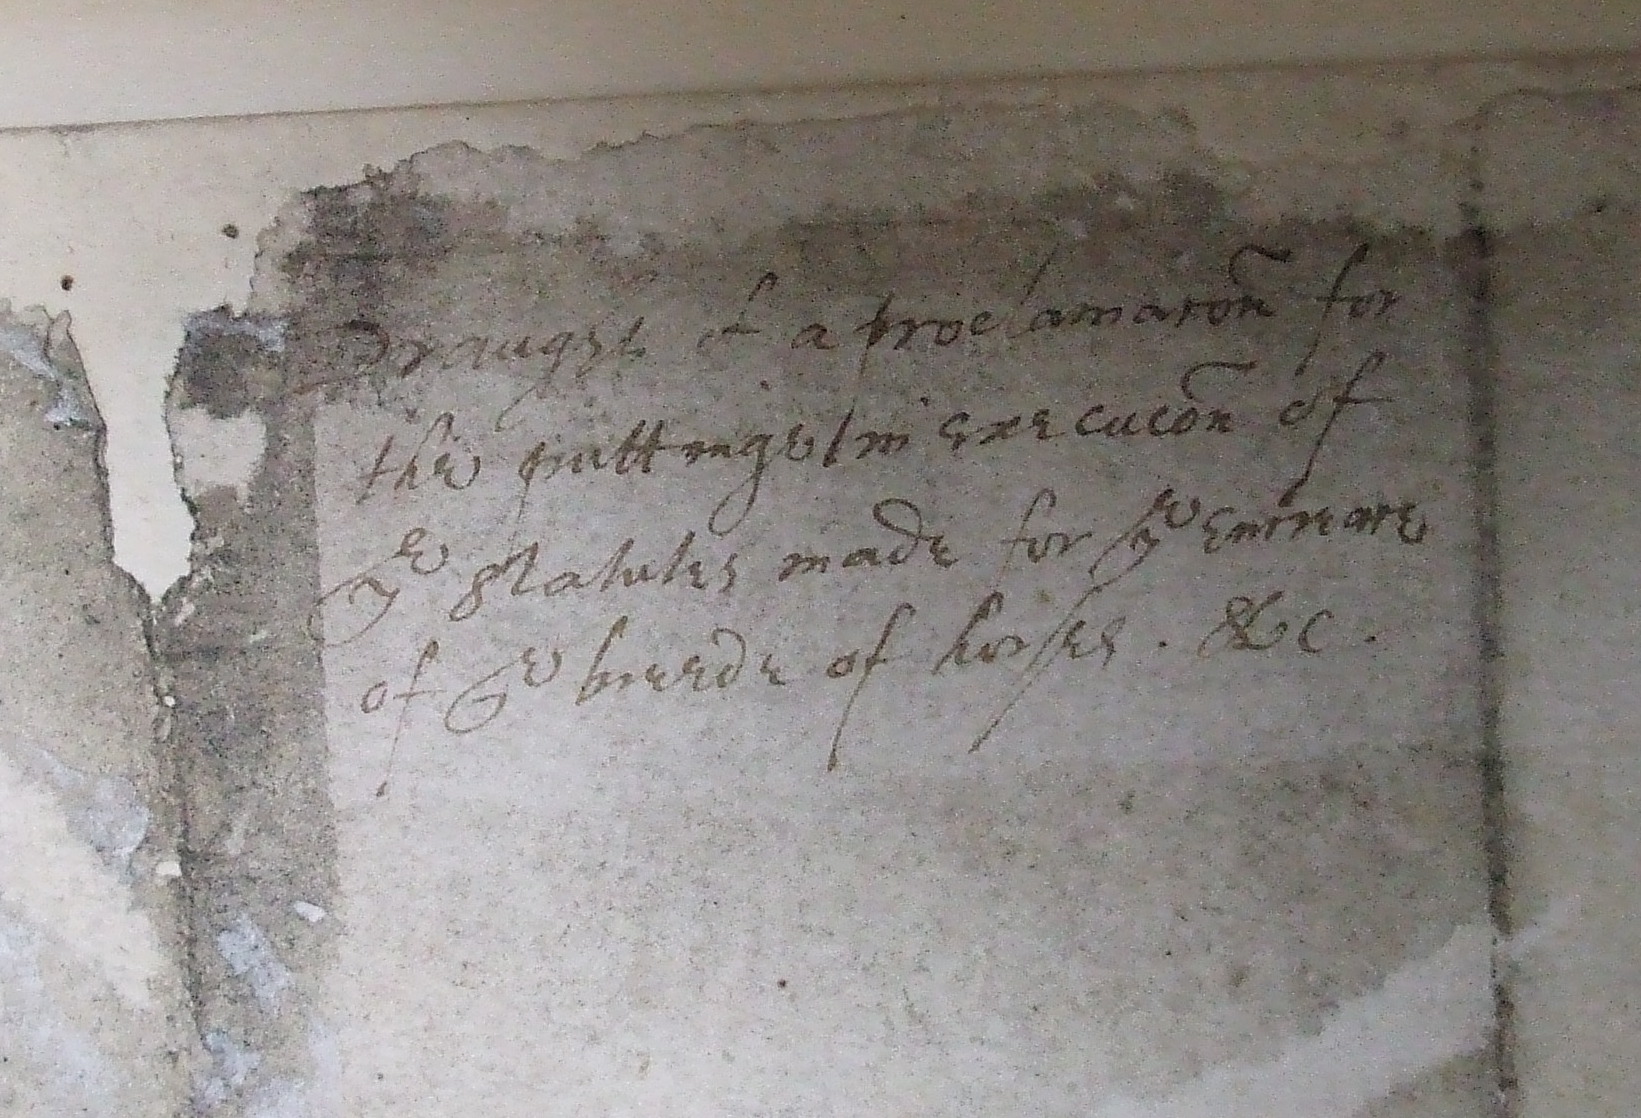 Draught of a proclamacon for
the puttinge in execucon of
ye statutes made for ye encreace
of ye breede of horses . &c .